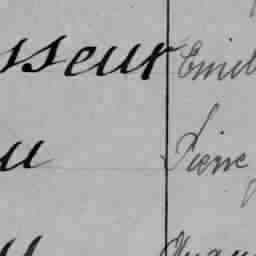 sseur Emil
u Pierre